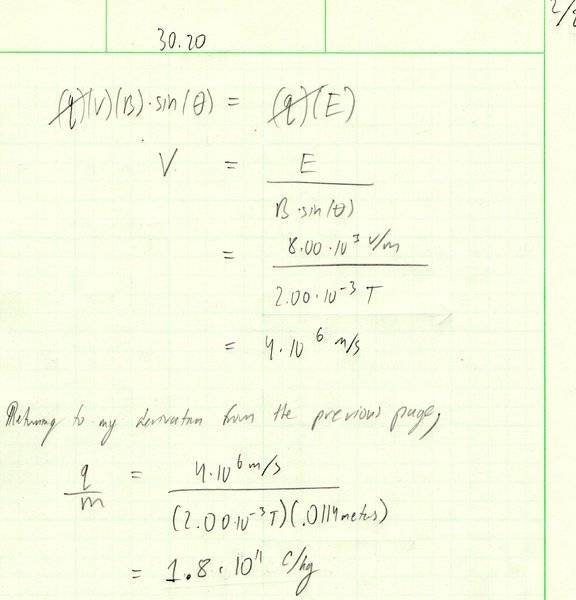 2/
30.20
(q)(V)(B)·sin(θ) = (q)(E)
V = E
B·sin(θ)
= 8.00·10³ V/m
2.00·10⁻³ T
= 4·10⁶ m/s
Returning to my derivation from the previous page,
q = 4·10⁶ m/s
m (2.00·10⁻³ T)(.0114 meters)
= 1.8·10¹¹ C/kg